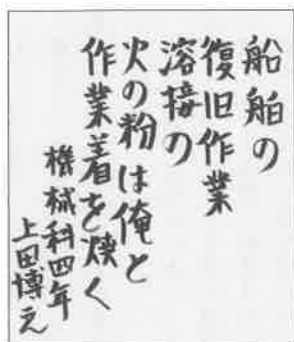 船舶の
復旧作業
溶接の
火の粉は俺と
作業着を焼く
機械科四年
上田博之